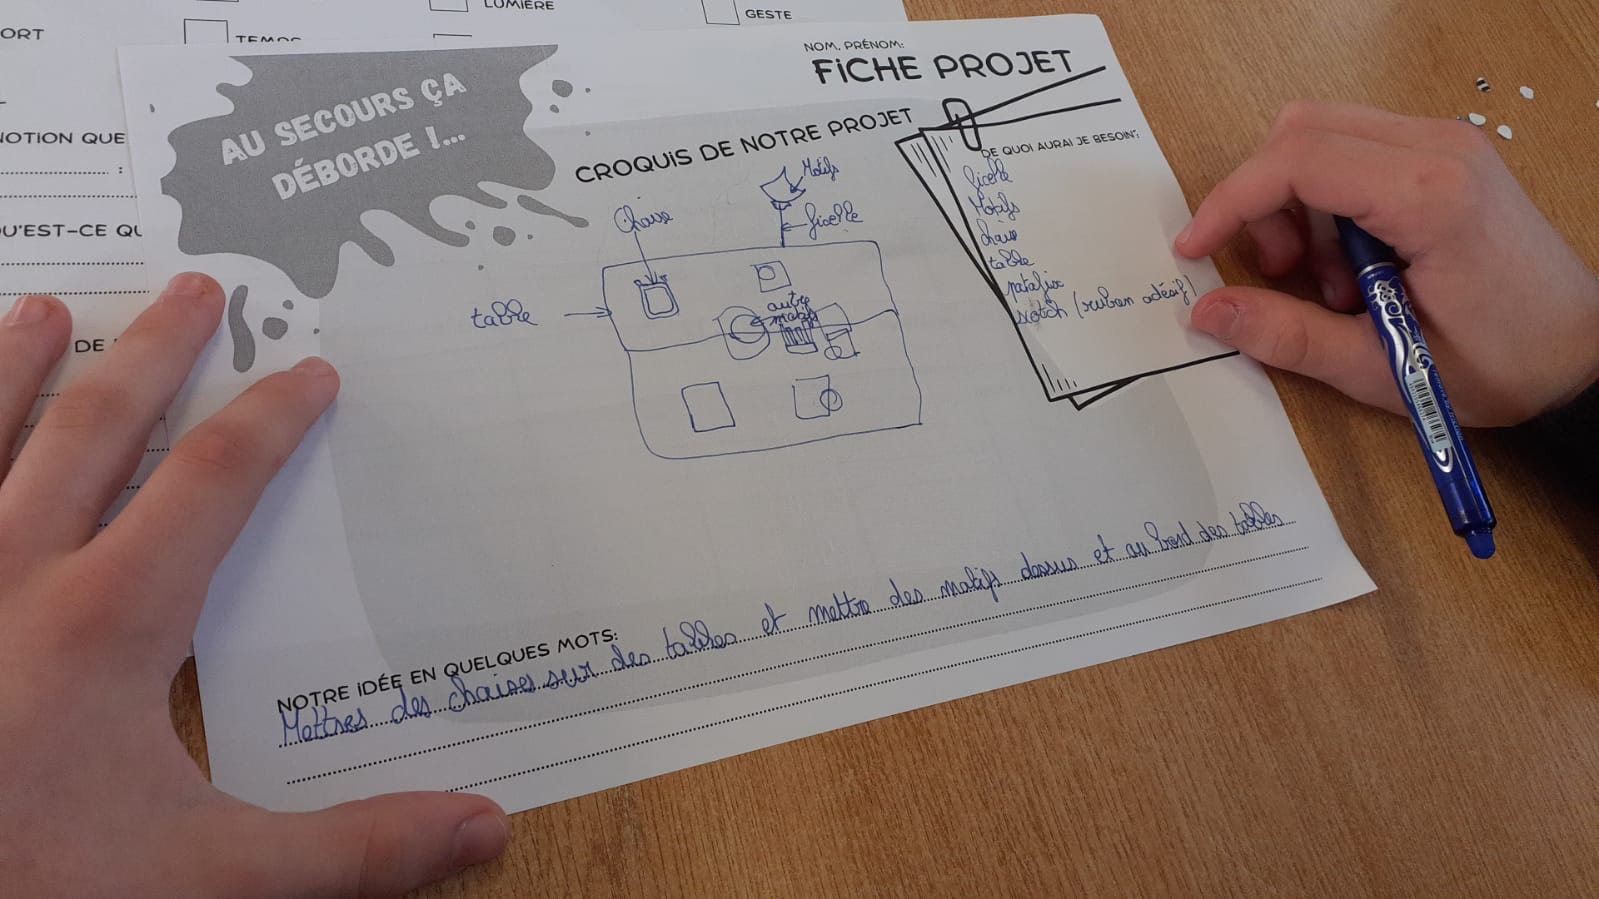 ORT
LUMIÈRE
GESTE
TEMPS
NOTION QUE
:
QU'EST-CE QU
DE
AU SECOURS ÇA
DÉBORDE !...
NOM, PRÉNOM:
FICHE PROJET
CROQUIS DE NOTRE PROJET
Motifs
Chaise
ficelle
table
autre
motifs
DE QUOI AURAI JE BESOIN:
ficelle
Motifs
chaise
table
patafix
scotch (ruban adésif)
NOTRE IDÉE EN QUELQUES MOTS:
Mettres des chaises sur des tables et mettre des motifs dessus et au bord des tables